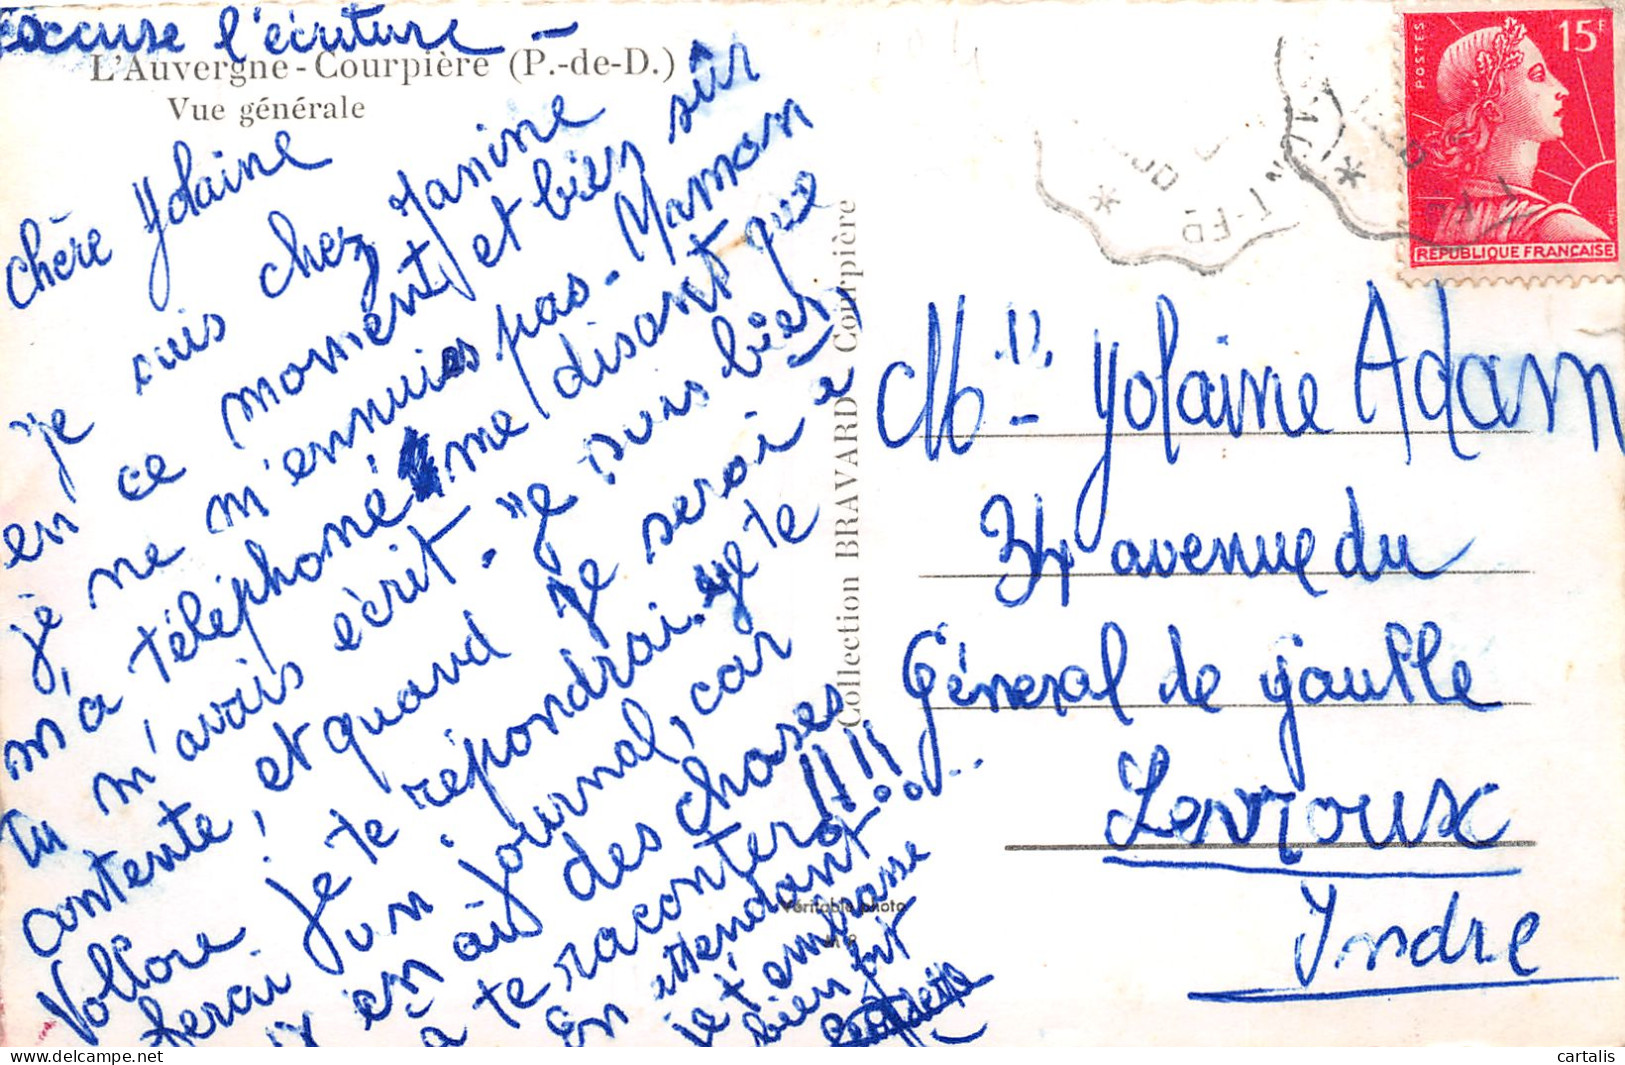 excuse l'écriture -
L'Auvergne - Courpière (P.-de-D.)
Vue générale
Chère Yolaine
Je suis chez Janine
en ce moment, et bien sûr
je ne m'ennuies pas. Maman
m'a téléphoné me disant que
tu m'avais écrit. Je suis bien
contente, et quand je serai à
Vollore je te répondrai. je te
ferai un journal, car
j'en ai des choses
à te raconter!!!!
En attendant
je t'embrasse
bien fort
Collection BRAVARD Courpière
Véritable photo
POSTES
15F
REPUBLIQUE FRANÇAISE
Mlle Yolaine Adam
34 avenue du
Général de gaulle
Levroux
Indre
cartalis